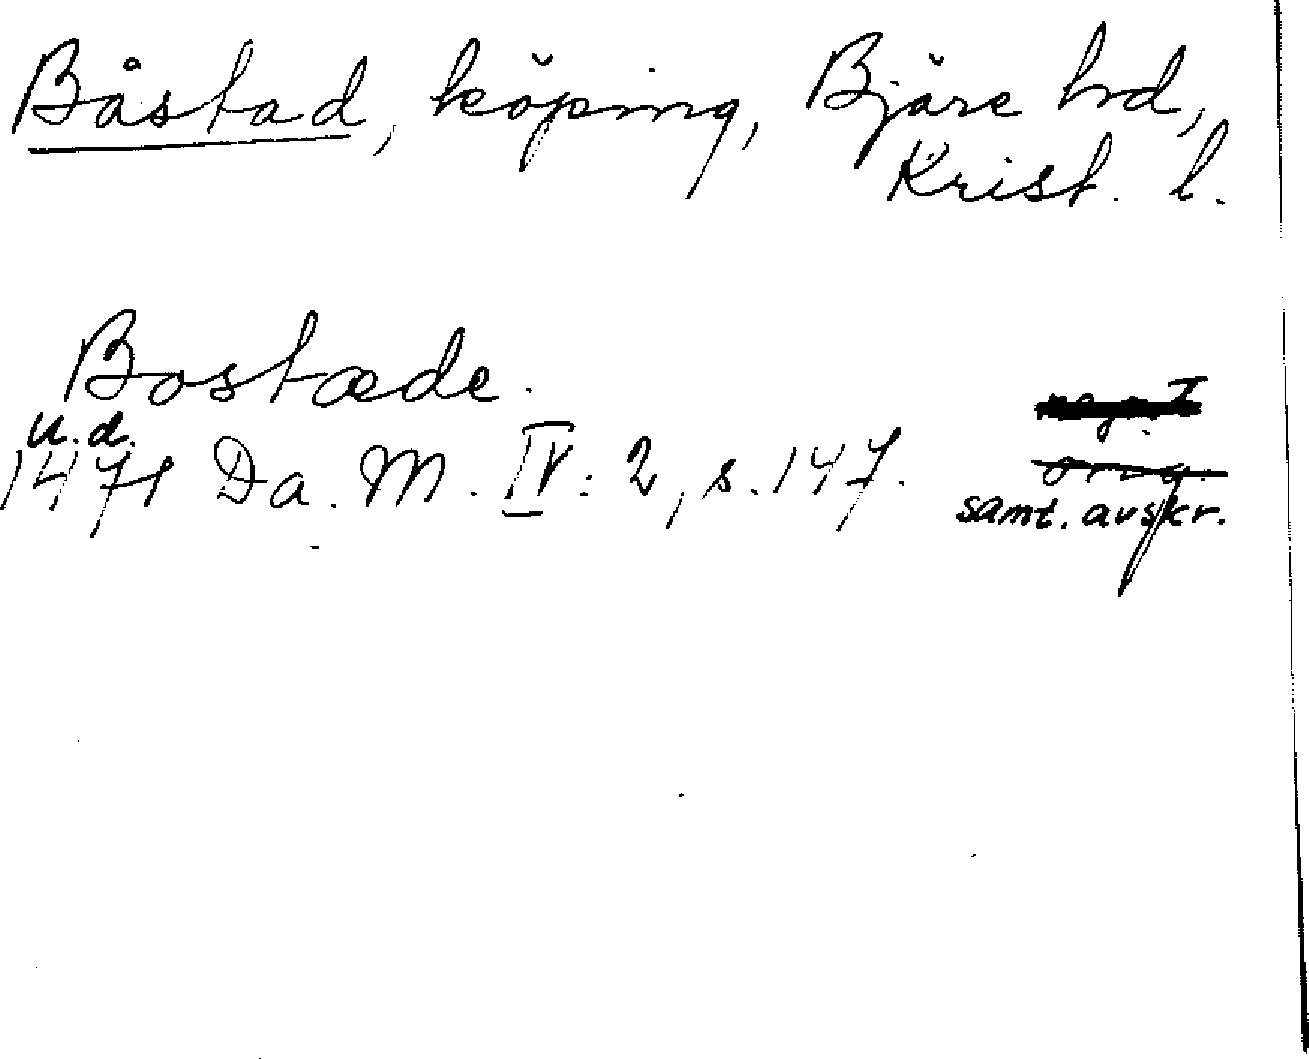 Båstad, köping, Bjäre hd,
Krist. l.
Bostæde.
u.d.
1471 Da. M. IV: 2, s. 147.
orig.
samt. avskr.